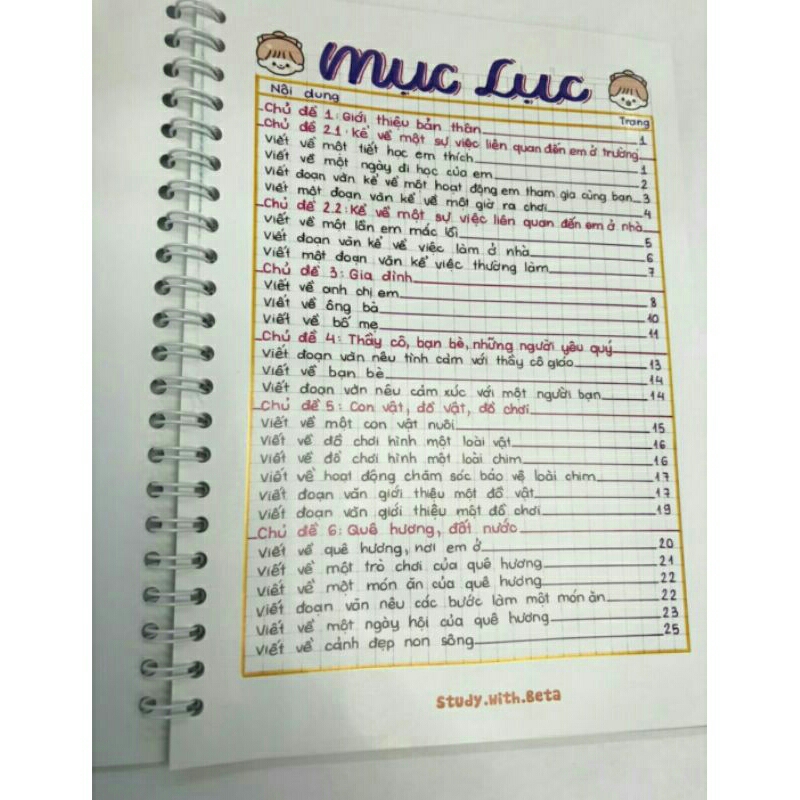 Mục Lục
Nội dung Trang
Chủ đề 1: Giới thiệu bản thân 1
Chủ đề 2.1: Kể về một sự việc liên quan đến em ở trường
Viết về một tiết học em thích 1
Viết về một ngày đi học của em 2
Viết đoạn văn kể về một hoạt động em tham gia cùng bạn 3
Viết một đoạn văn kể về một giờ ra chơi 4
Chủ đề 2.2: Kể về một sự việc liên quan đến em ở nhà
Viết về một lần em mắc lỗi 5
Viết đoạn văn kể về việc làm ở nhà 6
Viết một đoạn văn kể việc thường làm 7
Chủ đề 3: Gia đình
Viết về anh chị em 8
Viết về ông bà 10
Viết về bố mẹ 11
Chủ đề 4: Thầy cô, bạn bè, những người yêu quý
Viết đoạn văn nêu tình cảm với thầy cô giáo 13
Viết về bạn bè 14
Viết đoạn văn nêu cảm xúc với một người bạn 14
Chủ đề 5: Con vật, đồ vật, đồ chơi
Viết về một con vật nuôi 15
Viết về đồ chơi hình một loài vật 16
Viết về đồ chơi hình một loài chim 16
Viết về hoạt động chăm sóc bảo vệ loài chim 17
Viết đoạn văn giới thiệu một đồ vật 17
Viết đoạn văn giới thiệu một đồ chơi 19
Chủ đề 6: Quê hương, đất nước
Viết về quê hương, nơi em ở 20
Viết về một trò chơi của quê hương 21
Viết về một món ăn của quê hương 22
Viết đoạn văn nêu các bước làm một món ăn 22
Viết về một ngày hội của quê hương 23
Viết về cảnh đẹp non sông 25
Study.with.Beta